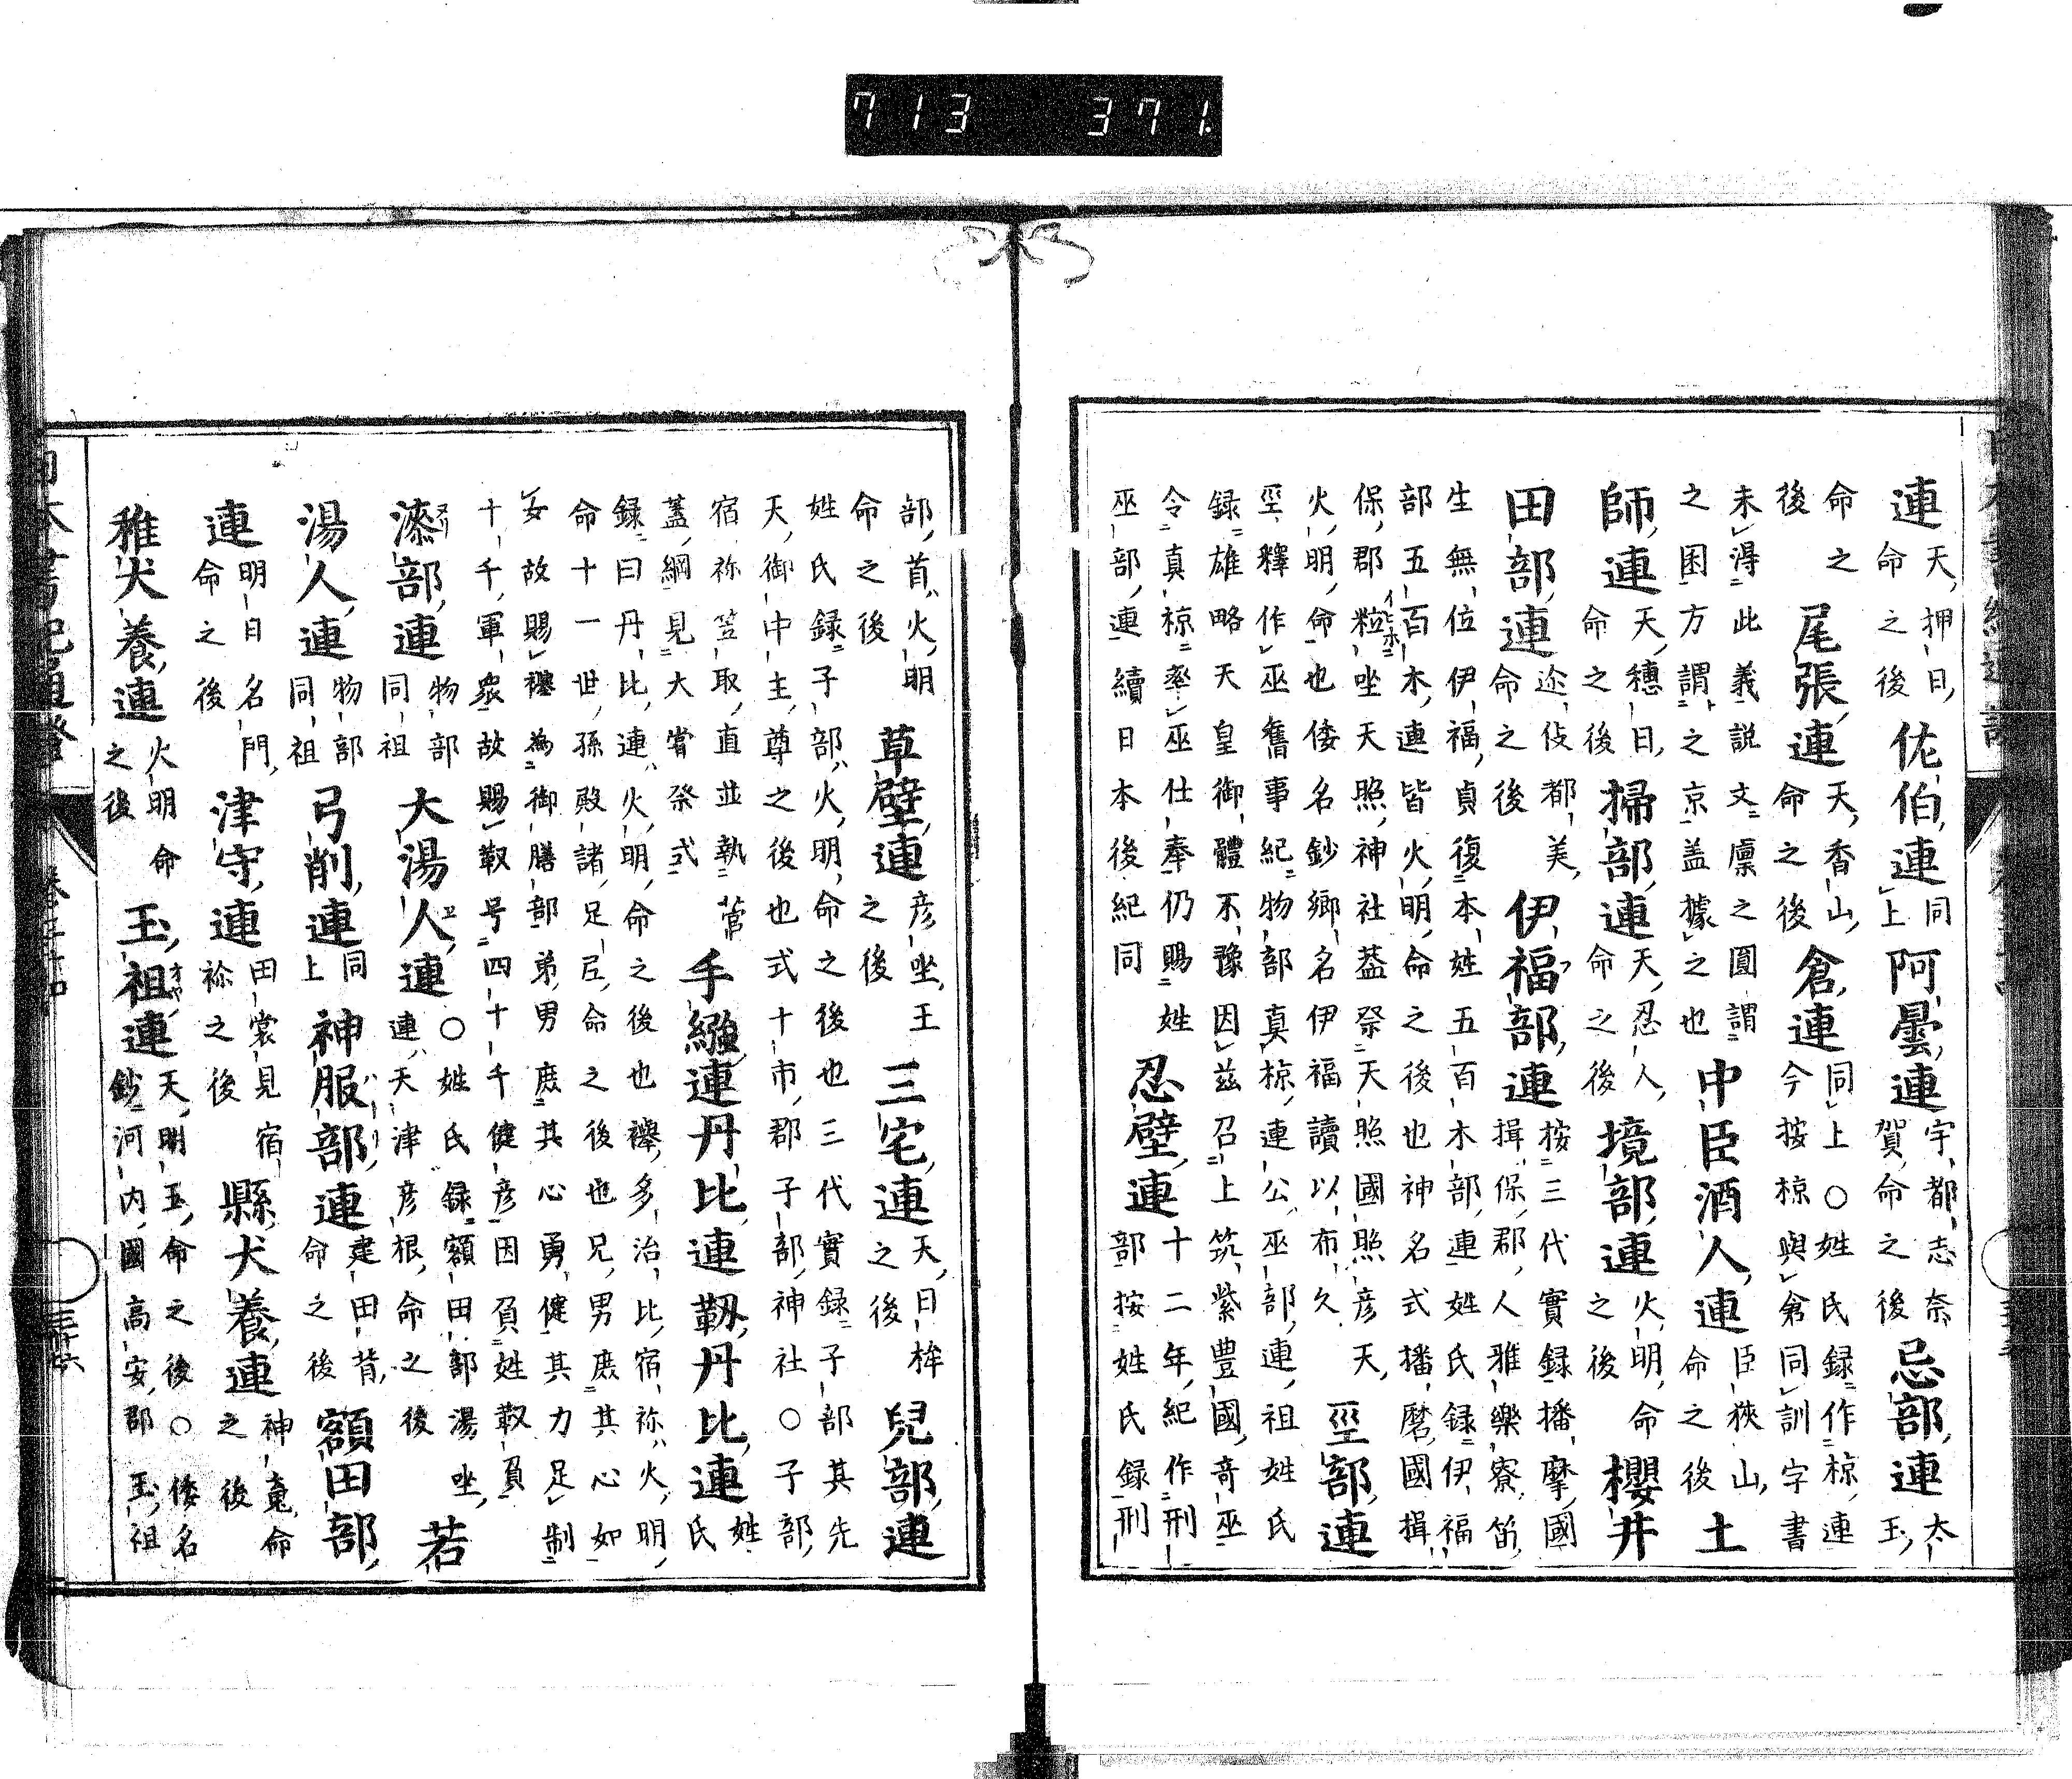 713 371.
連天押日命之後佐伯連同上阿曇連宇都志奈賀命之後忌部連太玉
命之後尾張連天香山命之後倉連同上○姓氏録作椋連今按椋與倉同訓字書
未得此義説文廩之圓謂之囷方謂之京盖據之也中臣酒人連臣狹山命之後土
師連天穗日命之後掃部連天忍人命之後境部連火明命之後櫻井
田部連途伎都美命之後伊福部連按三代實録播摩國揖保郡人雅樂寮笛
生無位伊福貞復本姓五百木部連姓氏録伊福部五百木連皆火明命之後也神名式播磨國揖
保郡粒坐天照神社葢祭天照國照彦天火明命也倭名鈔郷名伊福讀以布久巫部連
巫釋作巫舊事紀物部真椋連公巫部連祖姓氏録雄略天皇御體不豫因茲召上筑紫豊國竒巫
令真椋率巫仕奉仍賜姓巫部連續日本後紀同忍壁連十二年紀作刑部按姓氏録刑
部首火明命之後草壁連彦坐王之後三宅連天日桙之後兒部連
姓氏録子部火明命之後也三代實録子部其先天御中主尊之後也式十市郡子部神社○子部
宿祢笠取直並執菅蓋綱見大甞祭式手繦連丹比連靱丹比連姓氏
録曰丹比連火明命之後也襷多治比宿祢火明命十一世孫殿諸足尼命之後也兄男庶其心如
女故賜襷為御膳部弟男庶其心勇健其力足制十千軍衆故賜靫号四十千健彦因負姓靫負
漆部連物部同祖大湯人連○姓氏録額田部湯坐連天津彦根命之後若
湯人連物部同祖弓削連同上神服部連建田背命之後額田部
連明日名門命之後津守連田裳見宿祢之後縣犬養連神䰟命之後
稚犬養連火明命之後玉祖連天明玉命之後○倭名鈔河内國高安郡玉祖